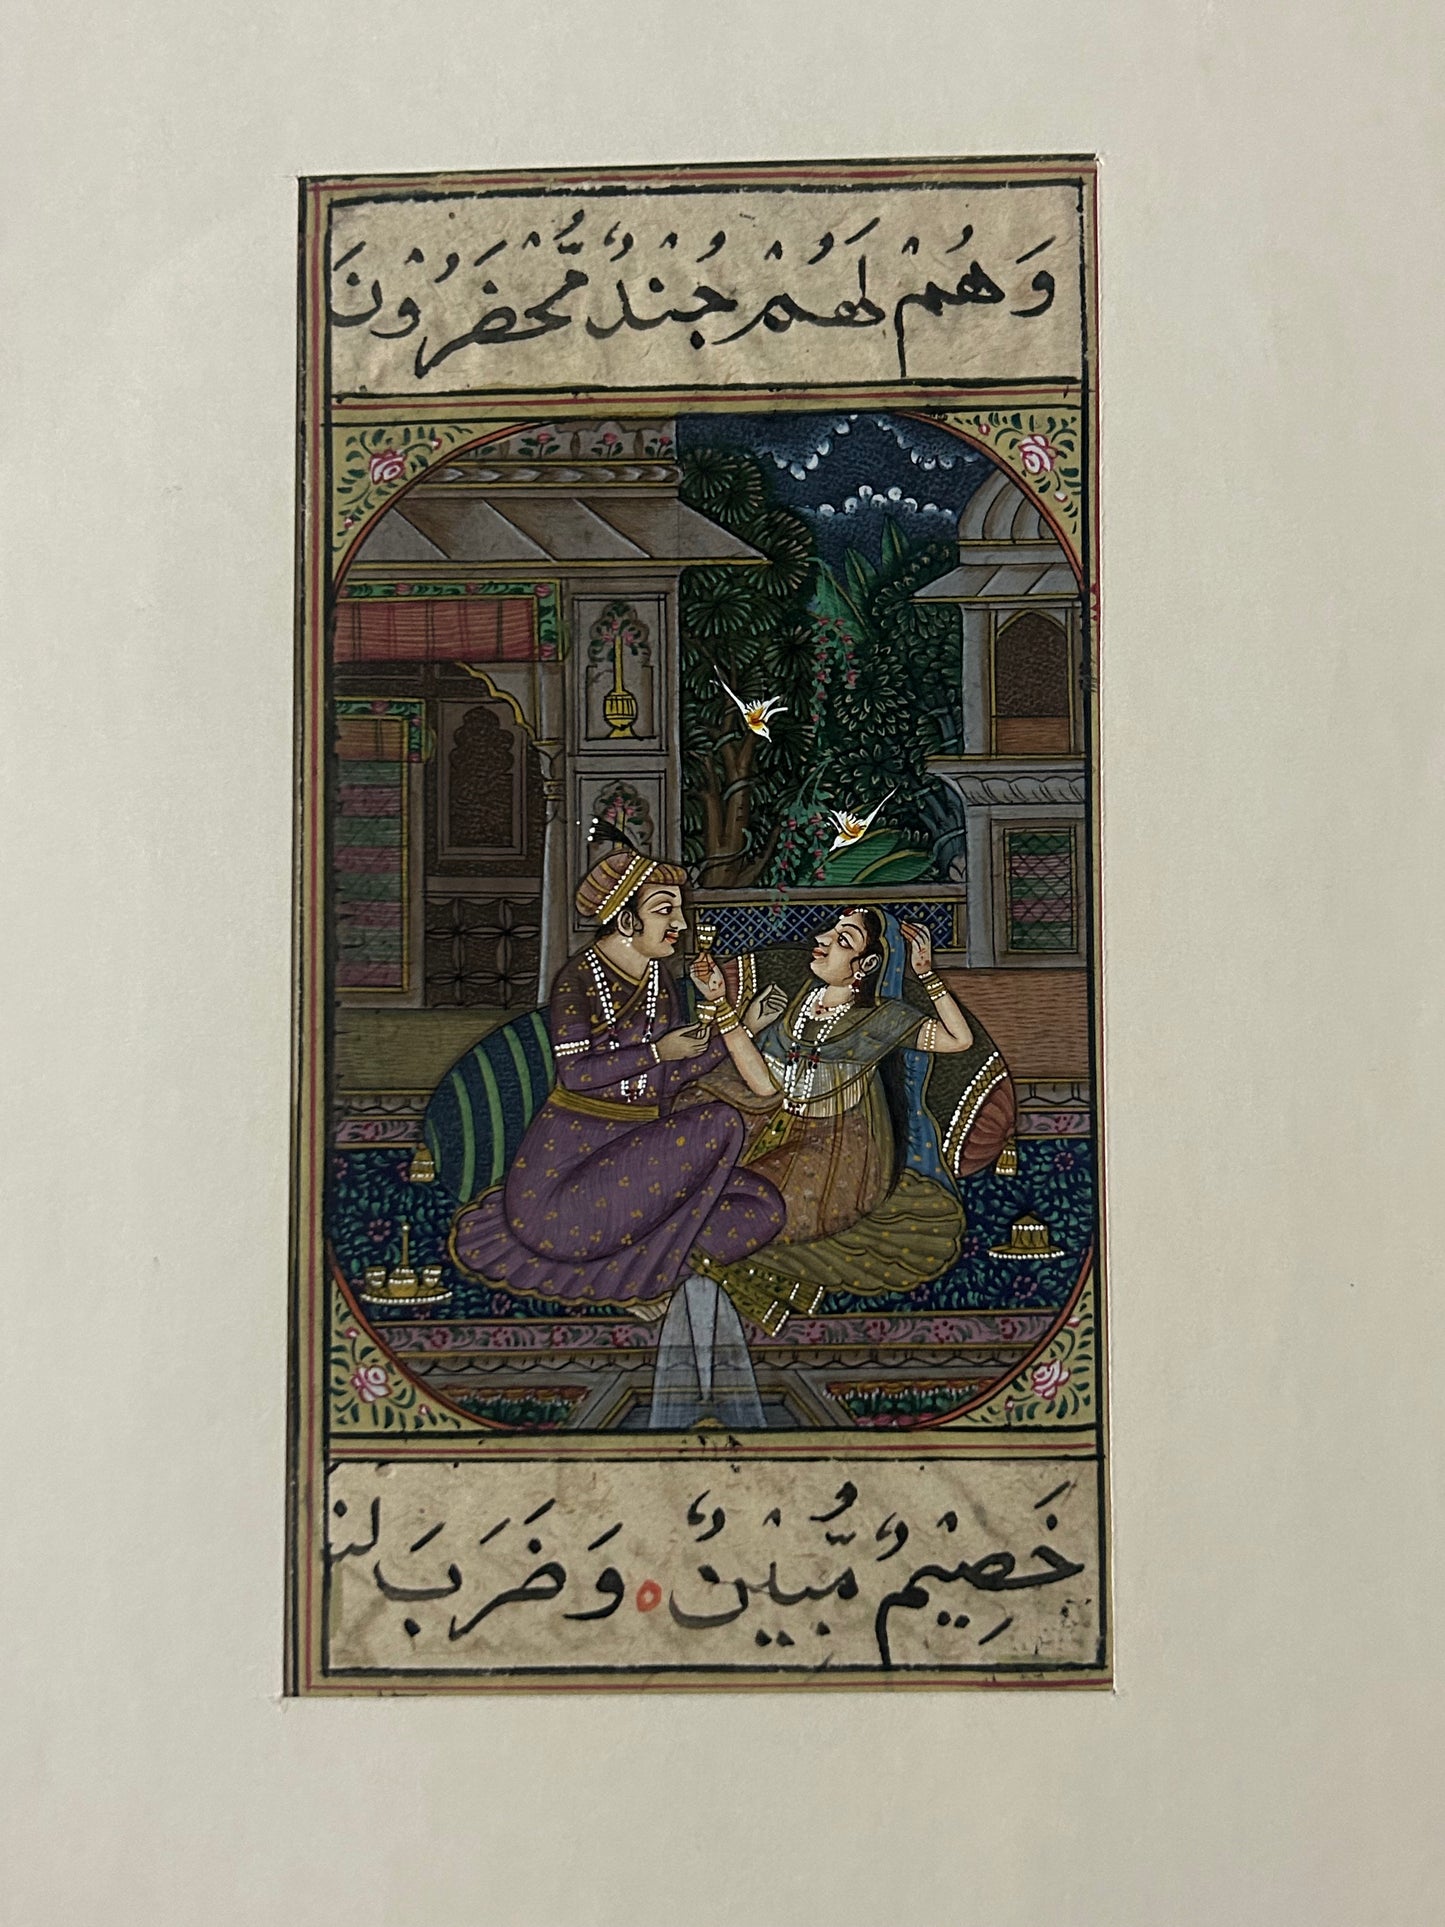 وَهُمْ لَهُمْ جُنْدٌ مُّحْضَرُوْنَ
خَصِيْمٌ مُّبِيْنٌ ٥ وَضَرَبَ لنـ